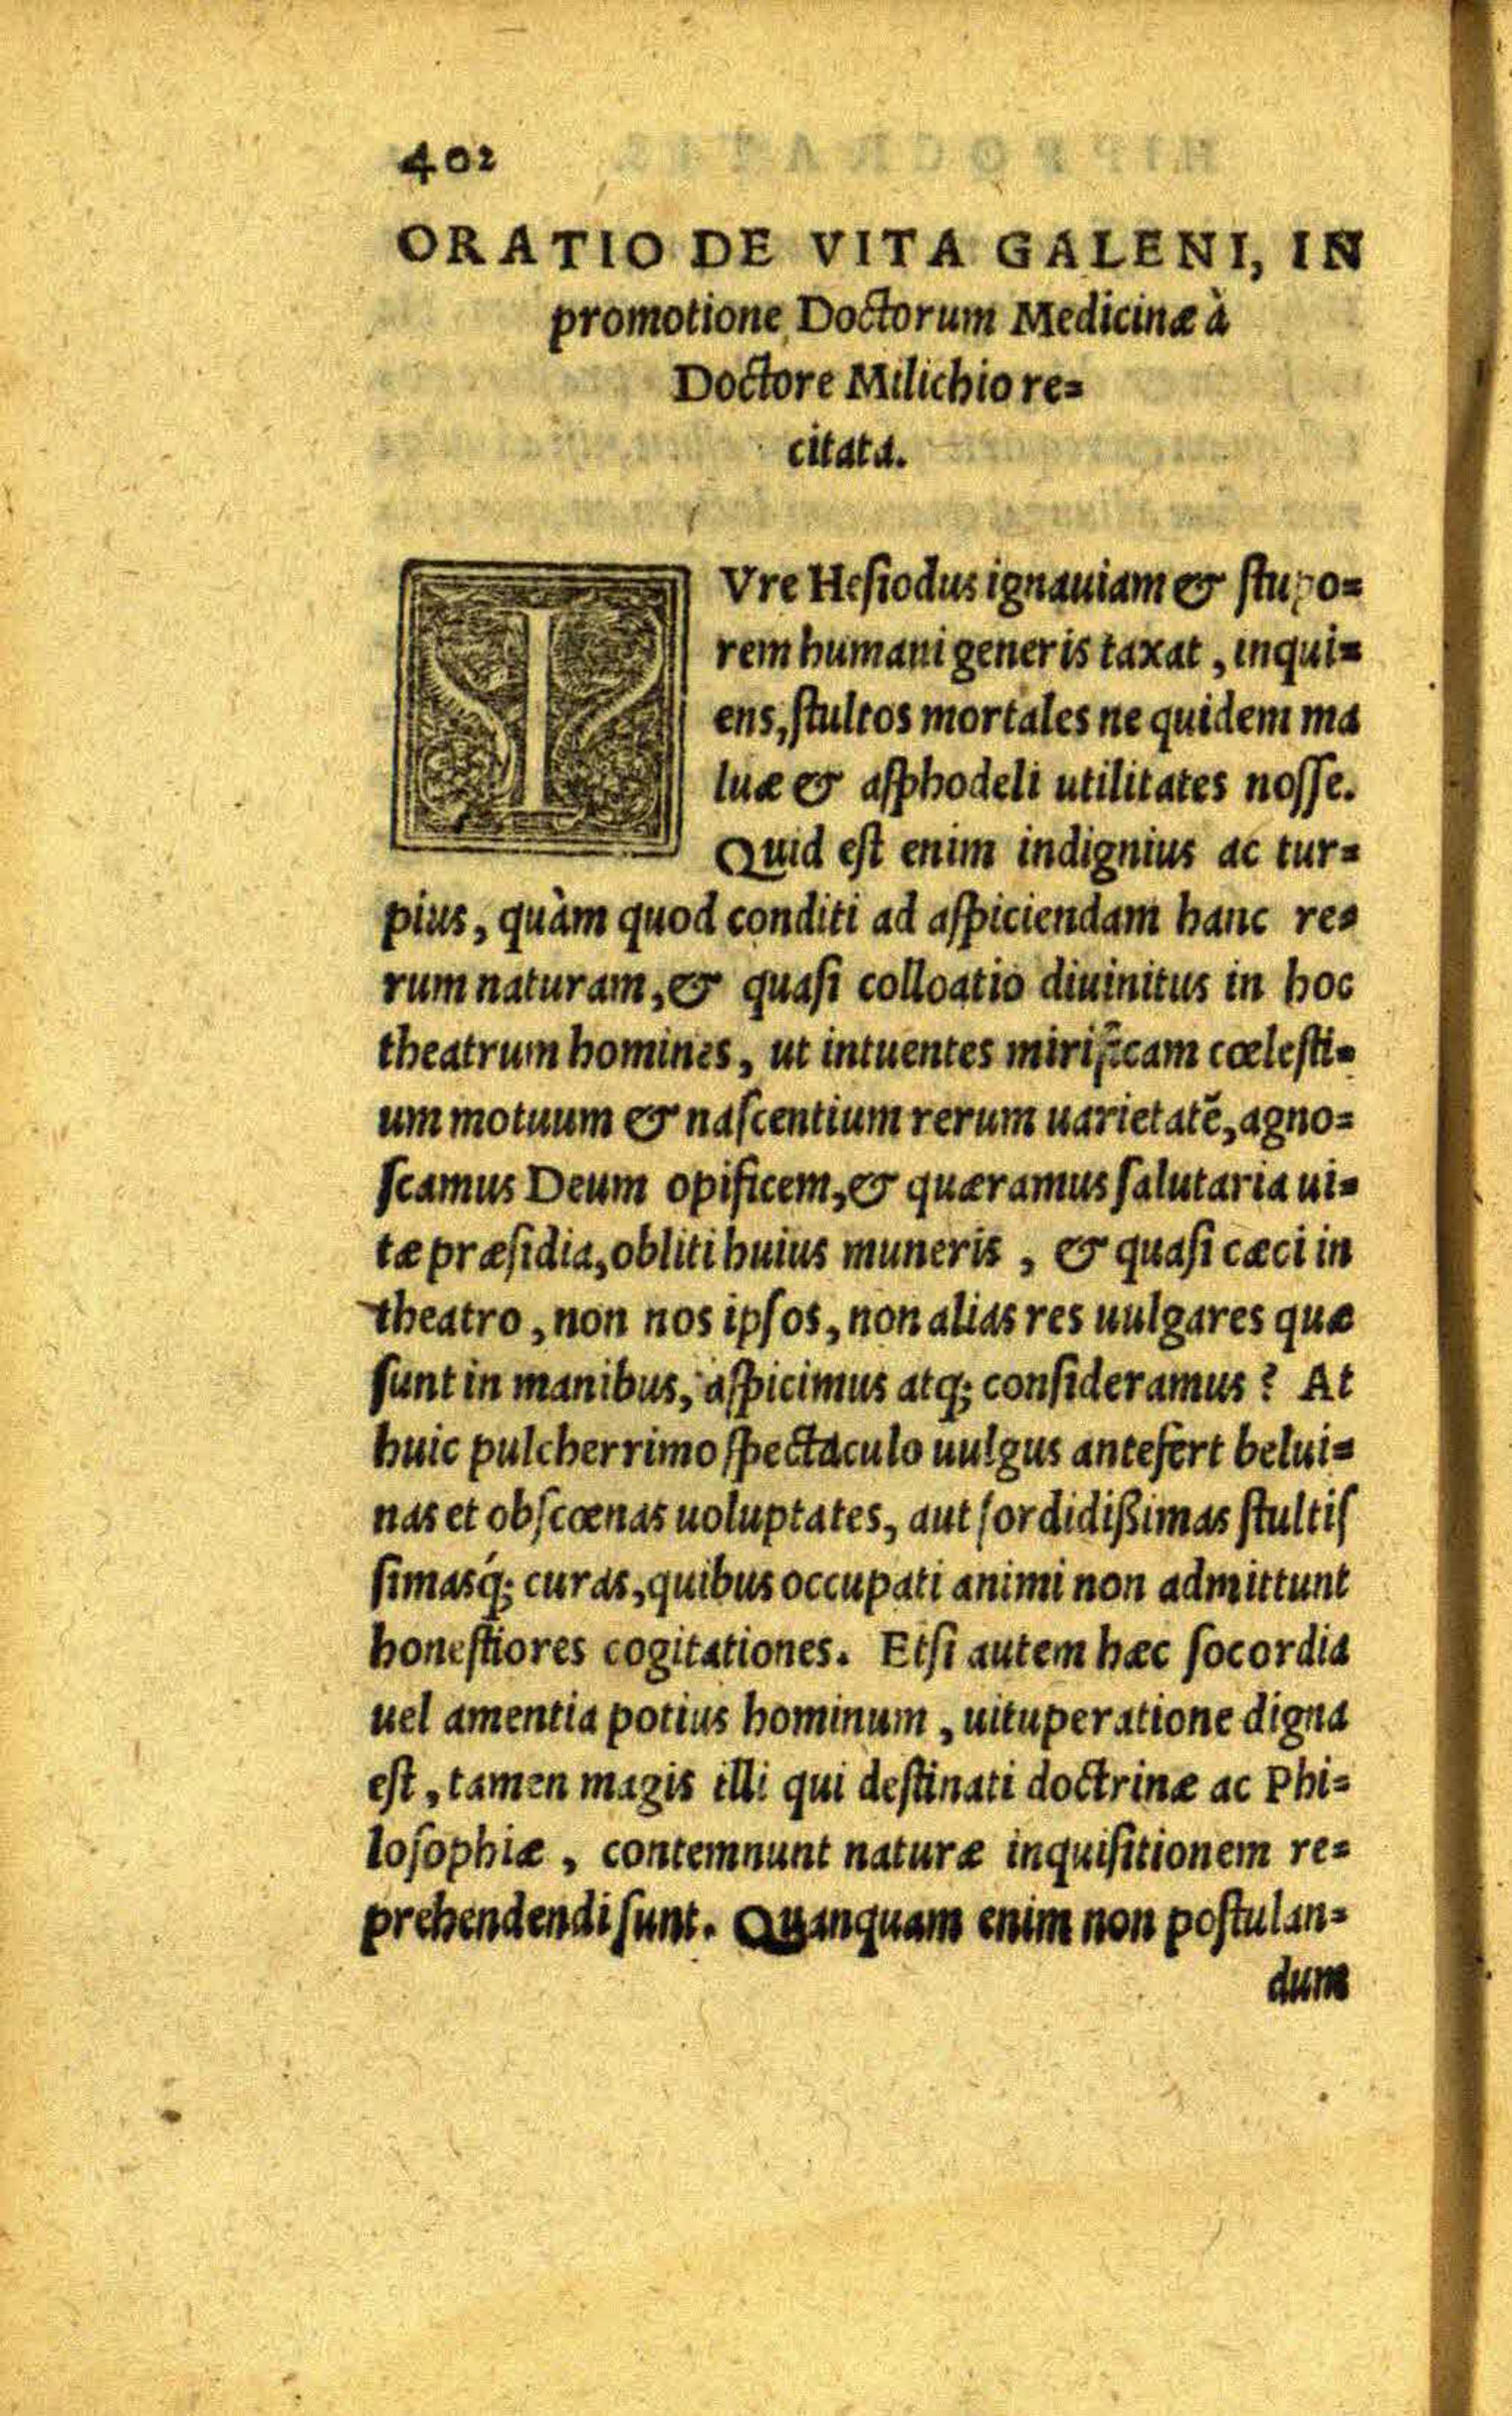 402
ORATIO DE VITA GALENI, IN
promotione Doctorum Medicinæ à
Doctore Milichio re=
citata.
IVre Hesiodus ignauiam & stupo=
rem humani generis taxat, inqui=
ens, stultos mortales ne quidem ma
luæ & asphodeli utilitates nosse.
Quid est enim indignius ac tur=
pius, quàm quod conditi ad aspiciendam hanc re=
rum naturam, & quasi colloatio diuinitus in hoc
theatrum homines, ut intuentes mirificam cœlesti=
um motuum & nascentium rerum uarietatē, agno=
scamus Deum opificem, & quæramus salutaria ui=
tæ præsidia, obliti huius muneris, & quasi cæci in
theatro, non nos ipsos, non alias res uulgares quæ
sunt in manibus, aspicimus atq; consideramus? At
huic pulcherrimo spectaculo uulgus antefert belui=
nas et obscœnas uoluptates, aut sordidißimas stultis
simasq́; curas, quibus occupati animi non admittunt
honestiores cogitationes. Etsi autem hæc socordia
uel amentia potius hominum, uituperatione digna
est, tamen magis illi qui destinati doctrinæ ac Phi=
losophiæ, contemnunt naturæ inquisitionem re=
prehendendi sunt. Quanquam enim non postulan=
dum